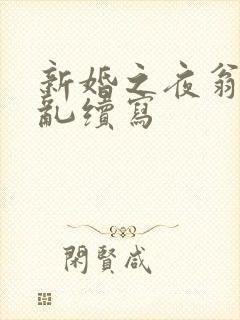 新婚之夜翁
亂續寫
閑賢咸